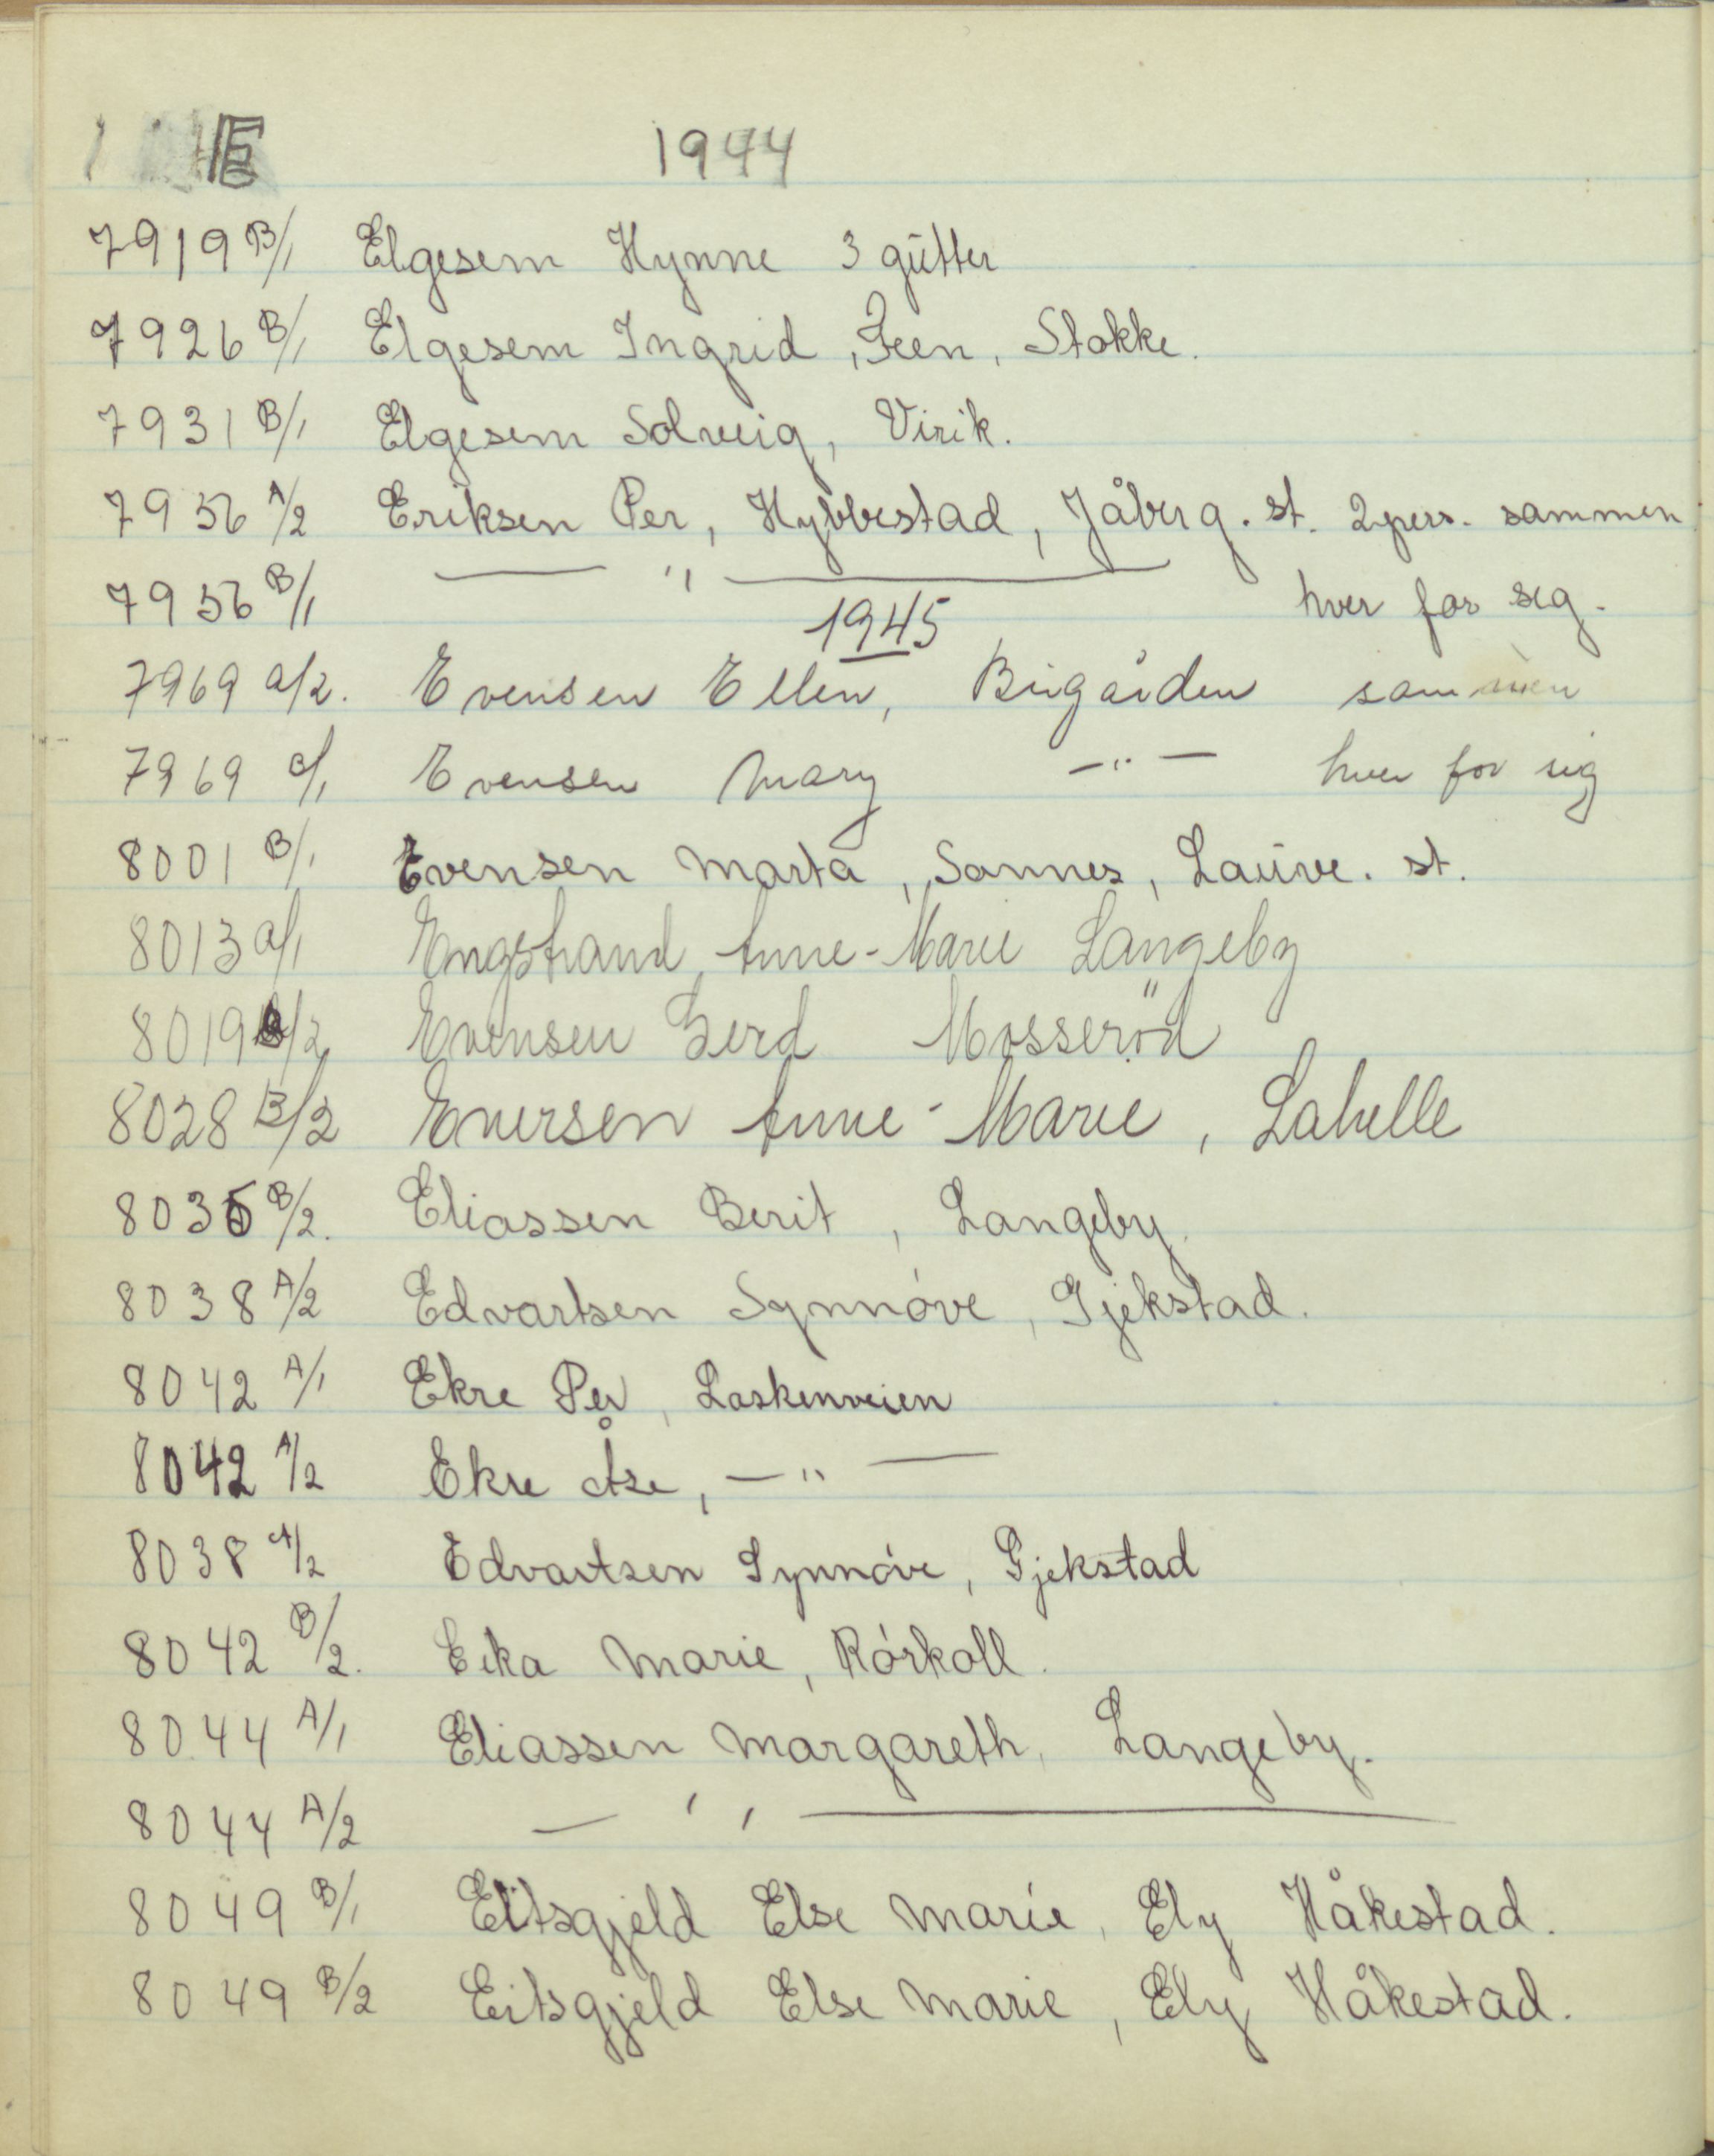 E 1944
7919 B/1 Elgesem Hynne 3 gütter
7926 B/1 Elgesem Ingrid, Feen, Stokke.
7931 B/1 Elgesem Solveig, Virik.
7956 A/2 Eriksen Per, Hybbestad, Jåberg. st. 2 pers. sammen
7956 B/1 — " — hver for seg.
1945
7969 a/2. Evensen Ellen, Bugården sammen
7969 c/1 Evensen Mary — " — hver for sig
8001 B/1 Evensen Marta, Sannes, Lauve. st.
8013 a/1 Engstrand, Anne-Marie Langeby
8019 /2 Evensen Gerd Mosserød
8028 B/2 Evensen Anne-Marie, Lahelle
8035 B/2. Eliassen Berit, Langeby.
8038 A/2 Edvartsen Synnóve, Gjekstad.
8042 A/1 Ekre Per, Laskenveien
8042 A/2 Ekre Åse, — " —
8038 A/2 Edvartsen Synnóve, Gjekstad
8042 B/2. Eika Marie, Rórkoll.
8044 A/1 Eliassen Margareth, Langeby.
8044 A/2 — " —
8049 B/1 Eitsgjeld Else Marie, Ely Håkestad.
8049 B/2 Eitsgjeld Else Marie, Ely Håkestad.